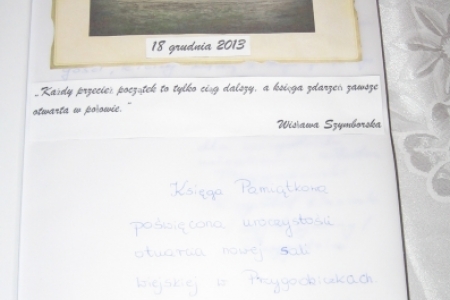 18 grudnia 2013
„Każdy przecież początek to tylko ciąg dalszy, a księga zdarzeń zawsze
otwarta w połowie.”
Wisława Szymborska
Księga Pamiątkowa
poświęcona uroczystości
otwarcia nowej sali
wiejskiej w Przygodziczkach